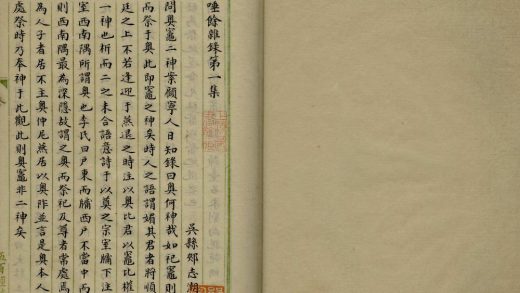 唾餘雜錄第一集
吳縣鄒志潮
問奧竈二神案顧寧人日知錄曰奧何神哉如祀竈則
而祭于奧此即竈之神矣時人之語謂媚其君者將順
廷之上不若逢迎于燕退之時注以奧比君以竈比權
一神也析而二之未合語意詩于以奠之宗室牖下注
室西南隅所謂奧也李氏曰戶東而牖西戶不當中而
則西南隅最為深隱故謂之奧而祭祀及尊者常處焉
為人子者居不主奧仲尼燕居以奧阼並言是奧本人
處祭時乃奉神于此觀此則奧竈非二神矣